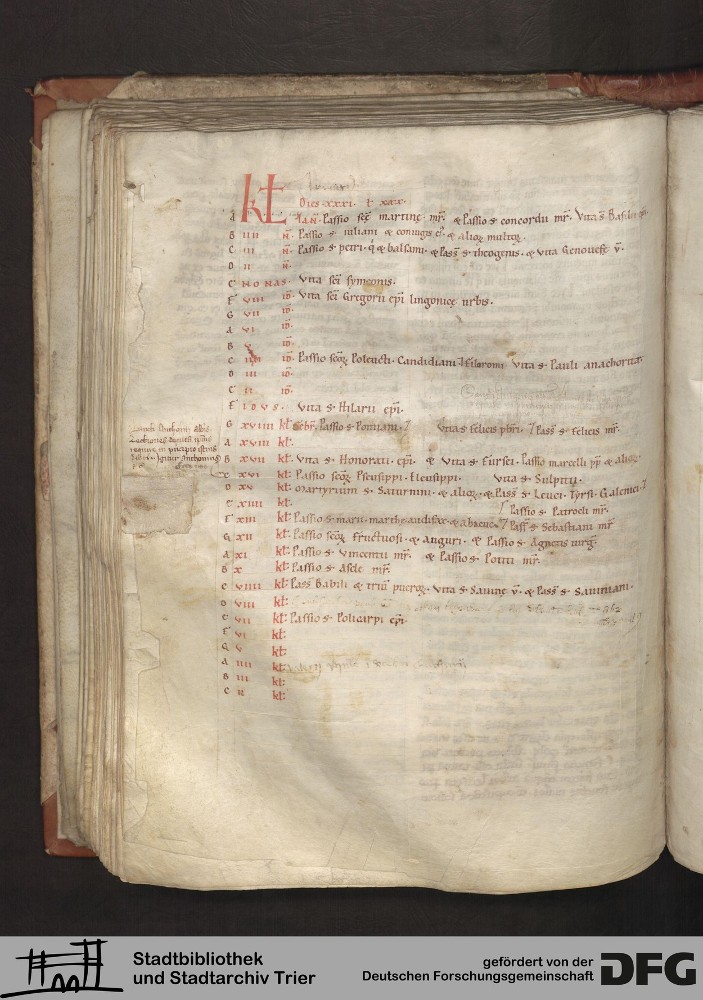 kƚ
Dies xxxi. ł xxx.
A Ian̄. Passio scē martinę mr̄. & Passio s concordii mr̄. Vita s Basilii ep̄i.
B iiii n̄. Passio s iuliani & coniugis ei. & alioꝝ multoꝝ.
C iii n̄. Passio s petri. q̇ & balsami. & Pass s theogenis. & vita Genovefe v̄.
D ii n̄.
E NONAS. Vita sc̄i symeonis.
F viii id̄. Vita sc̄i Gregorii ep̄i lingonicę urbis.
G vii id̄.
A vi id̄.
B v id̄.
C iiii id̄. Passio sc̄oꝝ Poleucti. Candidiani ⁊ filoromi vita s Pauli anachoritę.
D iii id̄.
E ii id̄.
F IDVS. Vita s Hilarii ep̄i.
G xviiii kƚ febr̄. Passio s Pontiani. ⁊ Vita s felicis pb̄ri. ⁊ Pass s felicis mr̄.
A xviii kƚ.
B xvii kƚ. Vita s Honorati ep̄i. & Vita s fursei. Passio marcelli pp̄ & alioꝝ.
C xvi kƚ. Passio sc̄oꝝ Pseusippi. Eleusippi. Vita s Sulpitii.
D xv kƚ. Martyrium s Saturnini & alioꝝ. & Pass s Leuci. Tyrsi. Galenici. ⁊
E xiiii kƚ. / Passio s Patrocli mr̄.
F xiii kƚ. Passio s marii. marthę. audifax. & abacuc. ⁊ Pass s Sebastiani mr̄
G xii kƚ. Passio sc̄oꝝ fructuosi. & anguri. & Passio s Agnetis uirḡ.
A xi kƚ. Passio s Vincentii mr̄. & Passio s Potiti mr̄.
B x kƚ. Passio s Aselę mr̄.
C viiii kƚ. Pass Babili & triū pueroꝝ. Vita s Savinę v̄. & Pass s Saviniani.
D viii kƚ.
E vii kƚ. Passio s Policarpi ep̄i.
F vi kƚ.
G v kƚ.
A iiii kƚ.
B iii kƚ.
C ii kƚ.
Stadtbibliothek
und Stadtarchiv Trier
gefördert von der
Deutschen Forschungsgemeinschaft
DFG